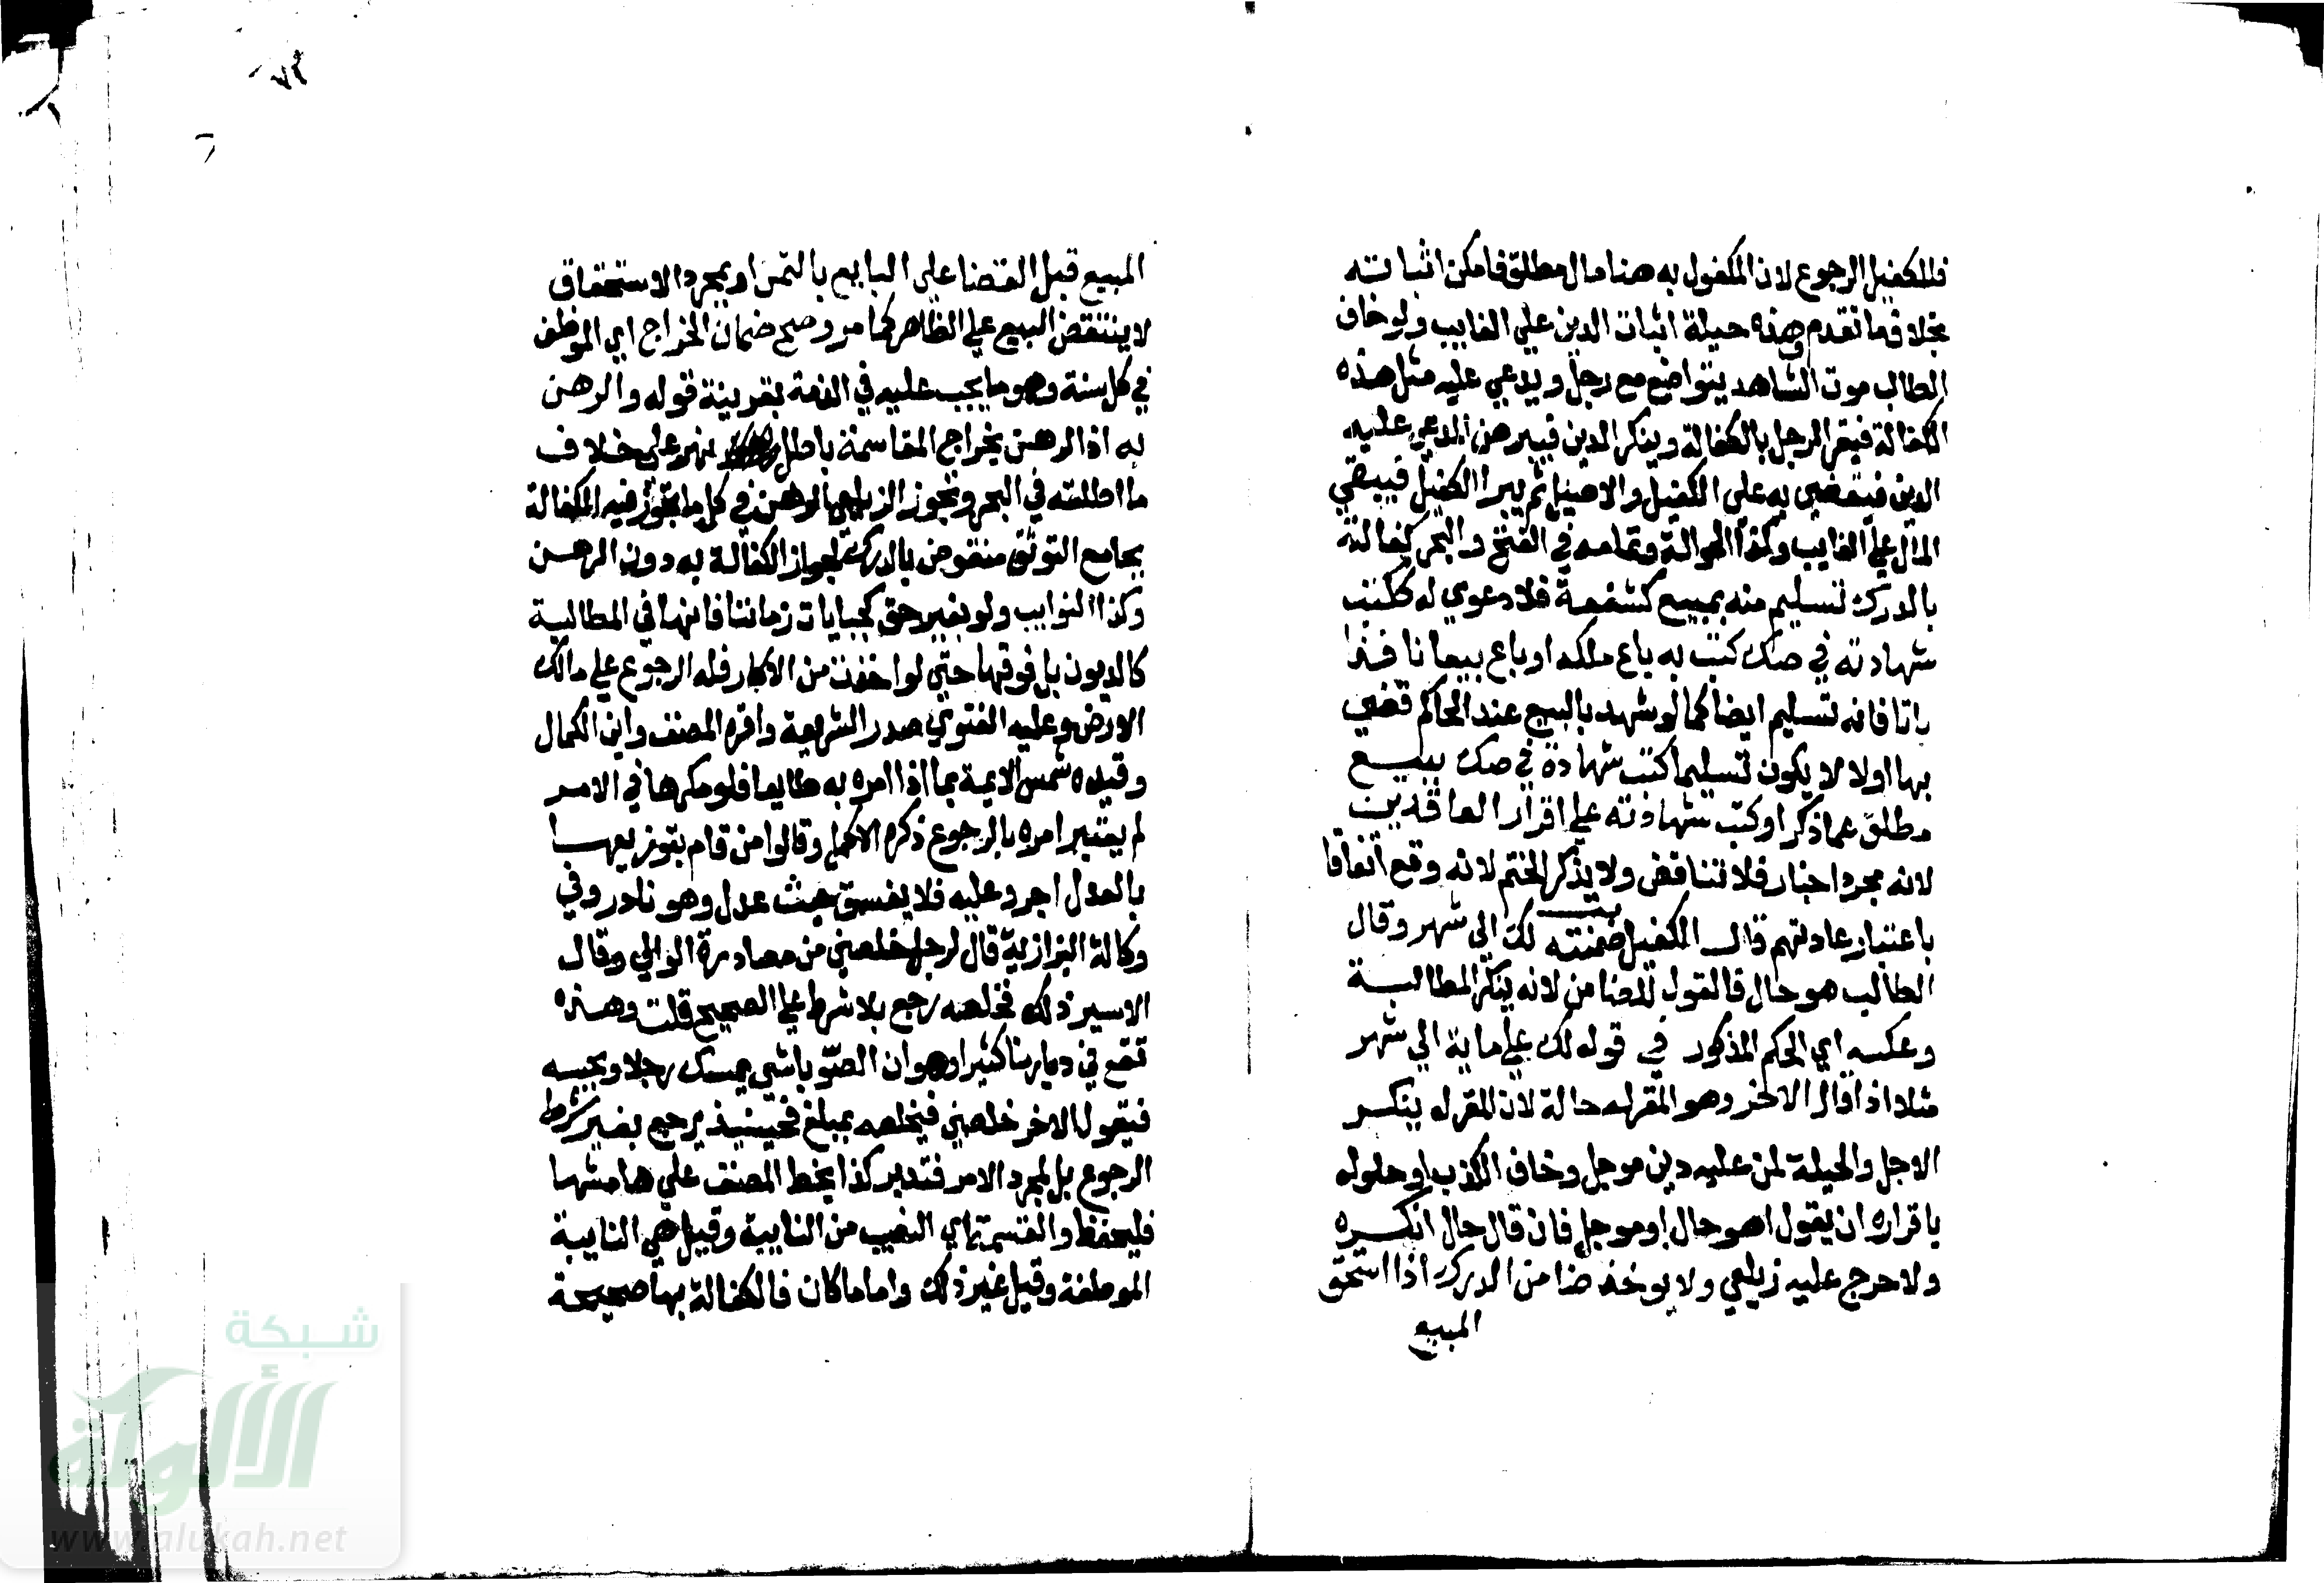 فللكفيل الرجوع لان المكفول به هنا مال مطلق فامكن اثباته
بخلاف ما تقدم وهذه حيلة اثبات الدين على الغايب ولو خاف
الطالب موت الشاهد يتواضع مع رجل ويدعي عليه مثل هذه
الكفالة فيقر الرجل بالكفالة وينكر الدين فيبرهن المدعي عليه
الدين فيقضي به على الكفيل والاصيل ثم يبرا الكفيل فيبقي
المال علي الغايب وكذا الحوالة وتمامه في الفتح والبحر كفالته
بالدرك تسليم منه بمبيع كشفعة فلا دعوي له ككتب
شهادته في صك كتب به باع ملكه او باع بيعا نافذا
باتا فانه تسليم ايضا كما لو شهد بالبيع عند الحاكم قضي
بها اولا لا يكون تسليما كتب شهادة في صك ببيع
مطلق عما ذكر او كتب شهادته علي اقرار العاقدين
لانه مجرد اخبار فلا تناقض ولا يذكر الختم لانه وقع اتفاقا
باعتبار عادتهم قال الكفيل ضمنته لك الي شهر وقال
الطالب هو حال فالقول للضامن لانه ينكر المطالبة
وعكسه اي الحكم المذكور في قوله لك علي ماية الي شهر
مثلا اذا قال الاخر وهو المقر له حالة لان المقر له ينكر
الاجل والحيلة لمن عليه دين موجل وخاف الكذب او حلوله
باقراره ان يقول اهو حال او موجل فان قال حال انكره
ولا حرج عليه زيلعي ولا يوخذ ضامن الدرك اذا استحق
المبيع
المبيع قبل القضا علي البايع بالثمن اذ بمجرد الاستحقاق
لا ينتقض البيع علي الظاهر كما مر وصح ضمان الخراج اي الموظف
في كل سنة وهو ما يجب عليه في الذمة بقرينة قوله والرهن
به اذ الرهن بخراج المقاسمة باطل نهر علي خلاف
ما اطلقه في البحر وتجوز الزيلعي الرهن في كل ما تجوز فيه الكفالة
بجامع التوثق منقوض بالدرك لجواز الكفالة به دون الرهن
وكذا النوايب ولو بغير حق كجبايات زماننا فانها في المطالبة
كالديون بل فوقها حتي لو اخذت من الاكار فله الرجوع علي مالك
الارض وعليه الفتوي صدر الشريعة واقره المصنف وابن الكمال
وقيده شمس الايمة بما اذا امره به طايعا فلو مكرها في الامر
لم يعتبر امره بالرجوع ذكره الاكمل وقالوا من قام بتوزيعها
بالعدل اجر وعليه فلا يفسق حيث عدل وهو نادر وفي
وكالة البزازية قال لرجل خلصني من مصادرة الوالي وقال
الاسير ذلك فخلصه رجع بلا شرط علي الصحيح قلت وهذه
تقع في ديارنا كثيرا وهو ان الصوباشي يمسك رجلا ويحبسه
فيقول لاخر خلصني فيخلصه بمبلغ فحينيذ يرجع بغير شرط
الرجوع بل لمجرد الامر فتدبر كذا بخط المصنف علي هامشها
فليحفظ والقسمة اي النصيب من النايبة وقيل هي النايبة
الموظفة وقيل غير ذلك واما ما كان فالكفالة بها صحيحة
شبكة
الألوكة
www.alukah.net